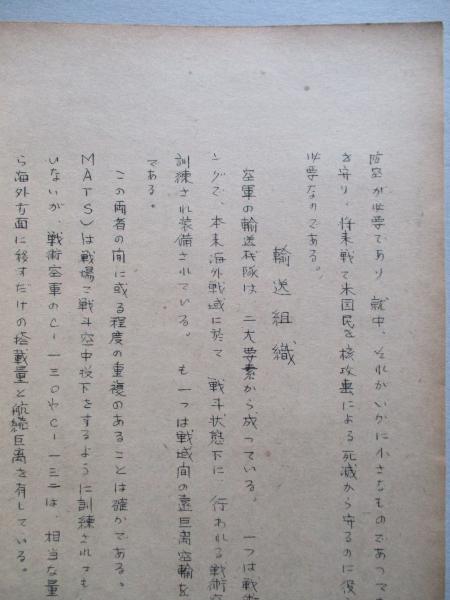 防空が必要であり、就中、それがいかに小さなものであつても
を守り、将来戦で米国民を核攻撃による死滅から守るのに役
必要なのである。
輸送組織
空軍の輸送機隊は、二大要素から成っている。 一つは戦術
ングで、本来海外戦域に於て、戦斗状態下に、行われる戦術空
訓練され装備されている。 も一つは戦域間の遠距離空輸を
である。
この両者の間に或る程度の重複のあることは確かである。
MATS)は戦場で戦斗空中投下をするように訓練されても
いないが、戦術空軍のC-一三〇やC-一三三は、相当な量
ら海外方面に移すだけの搭載量と航続距離を有している。